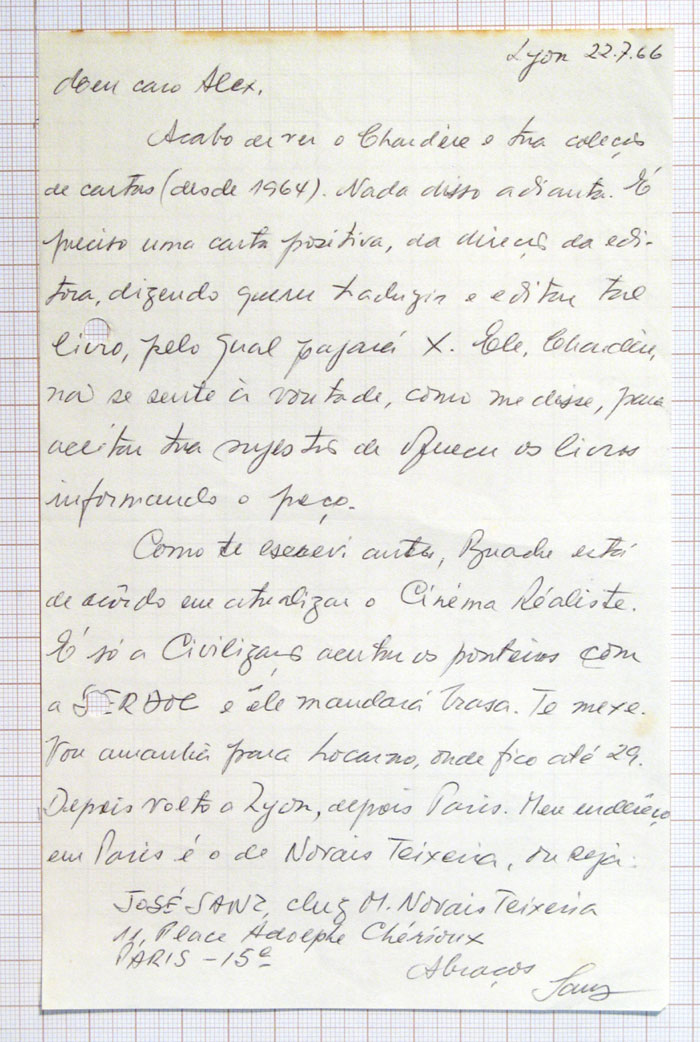 Lyon 22.7.66
Meu caro Alex,
Acabo de ver o Chardère e tua coleção
de cartas (desde 1964). Nada disso adianta. É
preciso uma carta positiva, da direção da edi-
tora, dizendo querer traduzir e editar tal
livro, pelo qual pagará X. Ele, Chardère,
não se sente à vontade, como me disse, para
aceitar tua sugestão de oferecer os livros
informando o preço.
Como te escrevi antes, Buache está
de acôrdo em atualizar o Cinéma Réaliste.
É só a Civilização acertar os ponteiros com
a SERDOC e êle mandará brasa. Te mexe.
Vou amanhã para Locarno, onde fico até 29.
Depois volto a Lyon, depois Paris. Meu endereço
em Paris é o de Novais Teixeira, ou seja:
JOSÉ SANZ, chez M. Novais Teixeira
11, Place Adolphe Chérioux
PARIS - 15e
Abraços
Sanz